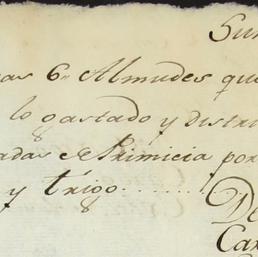 Sum
as 6 Almudes que
lo gastado y distri
adas e Primicia por
y trigo
De
Car